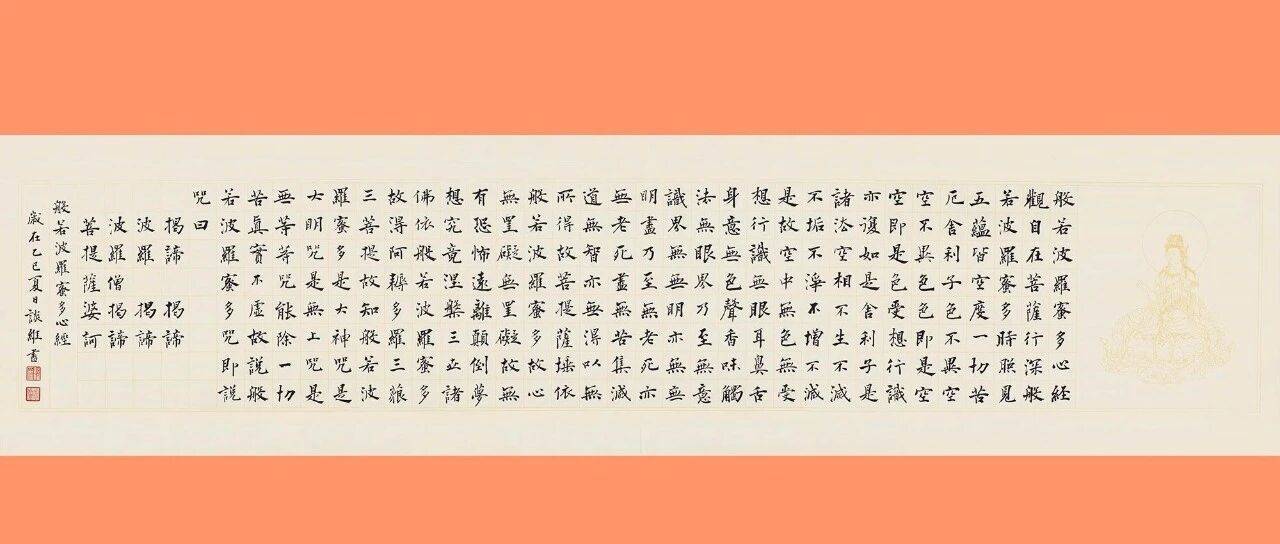 般若波羅蜜多心経
觀自在菩薩行深般
若波羅蜜多時照見
五蘊皆空度一切苦
厄舍利子色不異空
空不異色色即是空
空即是色受想行識
亦復如是舍利子是
諸法空相不生不滅
不垢不淨不增不減
是故空中無色無受
想行識無眼耳鼻舌
身意無色聲香味觸
法無眼界乃至無意
識界無無明亦無無
明盡乃至無老死亦
無老死盡無苦集滅
道無智亦無得以無
所得故菩提薩埵依
般若波羅蜜多故心
無罣礙無罣礙故無
有恐怖遠離顛倒夢
想究竟涅槃三世諸
佛依般若波羅蜜多
故得阿耨多羅三藐
三菩提故知般若波
羅蜜多是大神咒是
大明咒是無上咒是
無等等咒能除一切
苦真實不虛故說般
若波羅蜜多咒即說
咒曰
揭諦 揭諦
波羅 揭諦
波羅僧 揭諦
菩提薩婆訶
般若波羅蜜多心經
歲在乙巳夏日 書